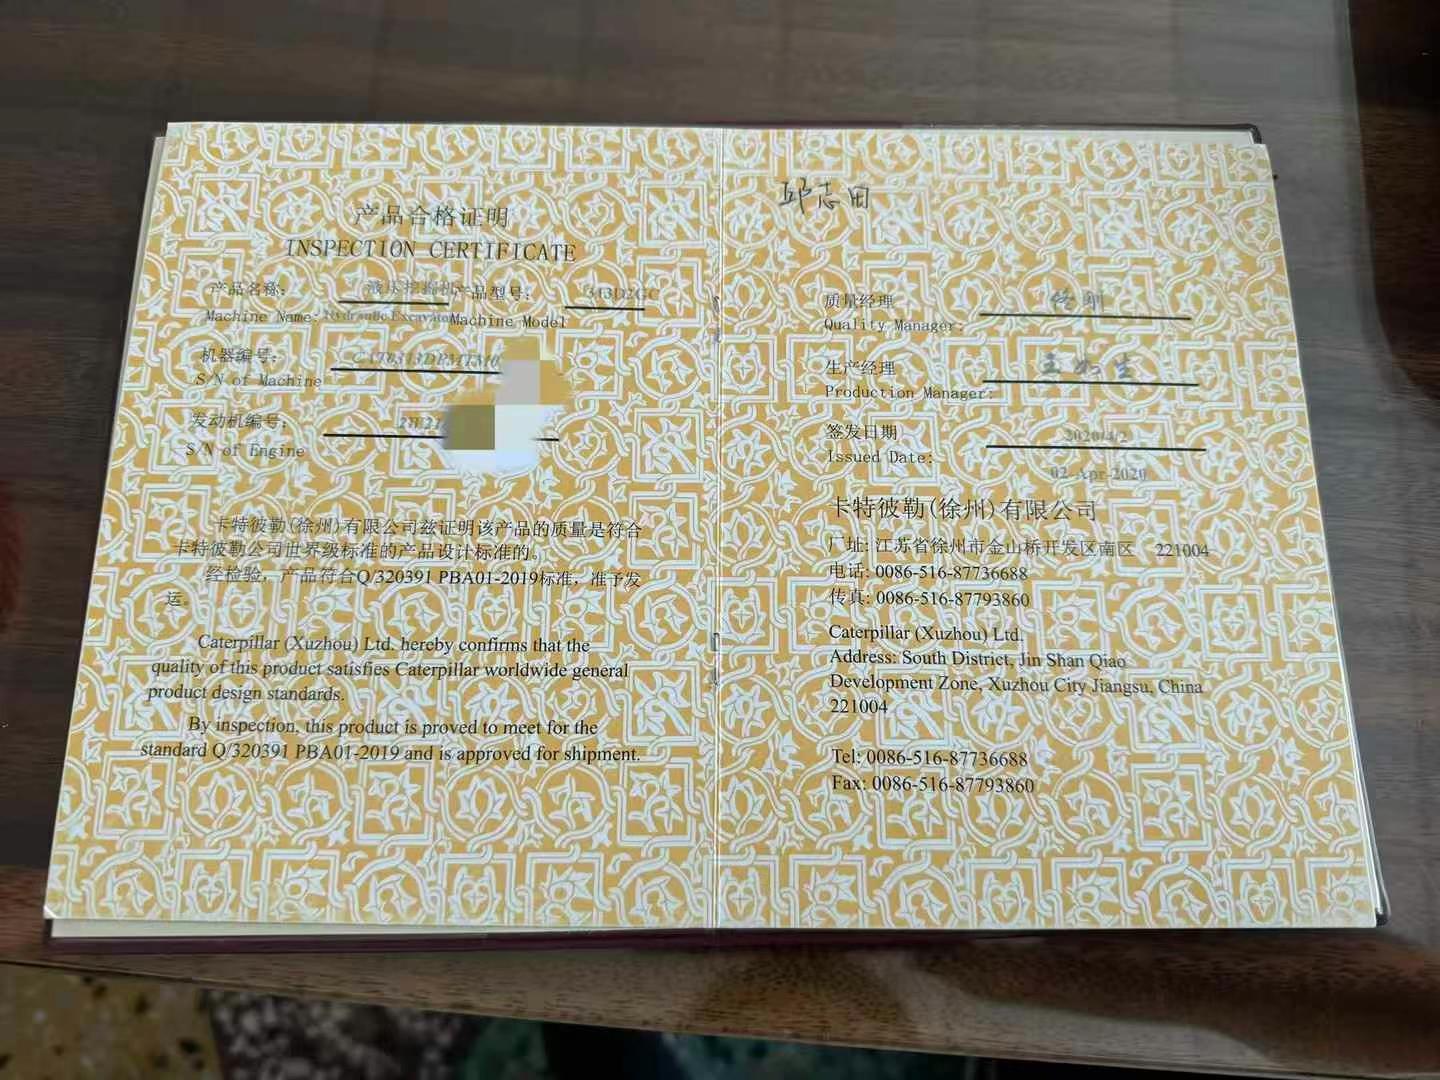 产品合格证明
INSPECTION CERTIFICATE
产品名称: 液压挖掘机 产品型号: 313D2GC
Machine Name: Hydraulic Excavator Machine Model
机器编号:
S/N of Machine
发动机编号:
S/N of Engine
卡特彼勒(徐州)有限公司兹证明该产品的质量是符合
卡特彼勒公司世界级标准的产品设计标准的。
经检验，产品符合Q/320391 PBA01-2019标准，准予发
运。
Caterpillar (Xuzhou) Ltd. hereby confirms that the
quality of this product satisfies Caterpillar worldwide general
product design standards.
By inspection, this product is proved to meet for the
standard Q/320391 PBA01-2019 and is approved for shipment.
邱志田
质量经理
Quality Manager:
生产经理
Production Manager:
签发日期 2020/4/2
Issued Date:
02-Apr-2020
卡特彼勒(徐州)有限公司
厂址: 江苏省徐州市金山桥开发区南区 221004
电话: 0086-516-87736688
传真: 0086-516-87793860
Caterpillar (Xuzhou) Ltd.
Address: South District, Jin Shan Qiao
Development Zone, Xuzhou City Jiangsu, China
221004
Tel: 0086-516-87736688
Fax: 0086-516-87793860